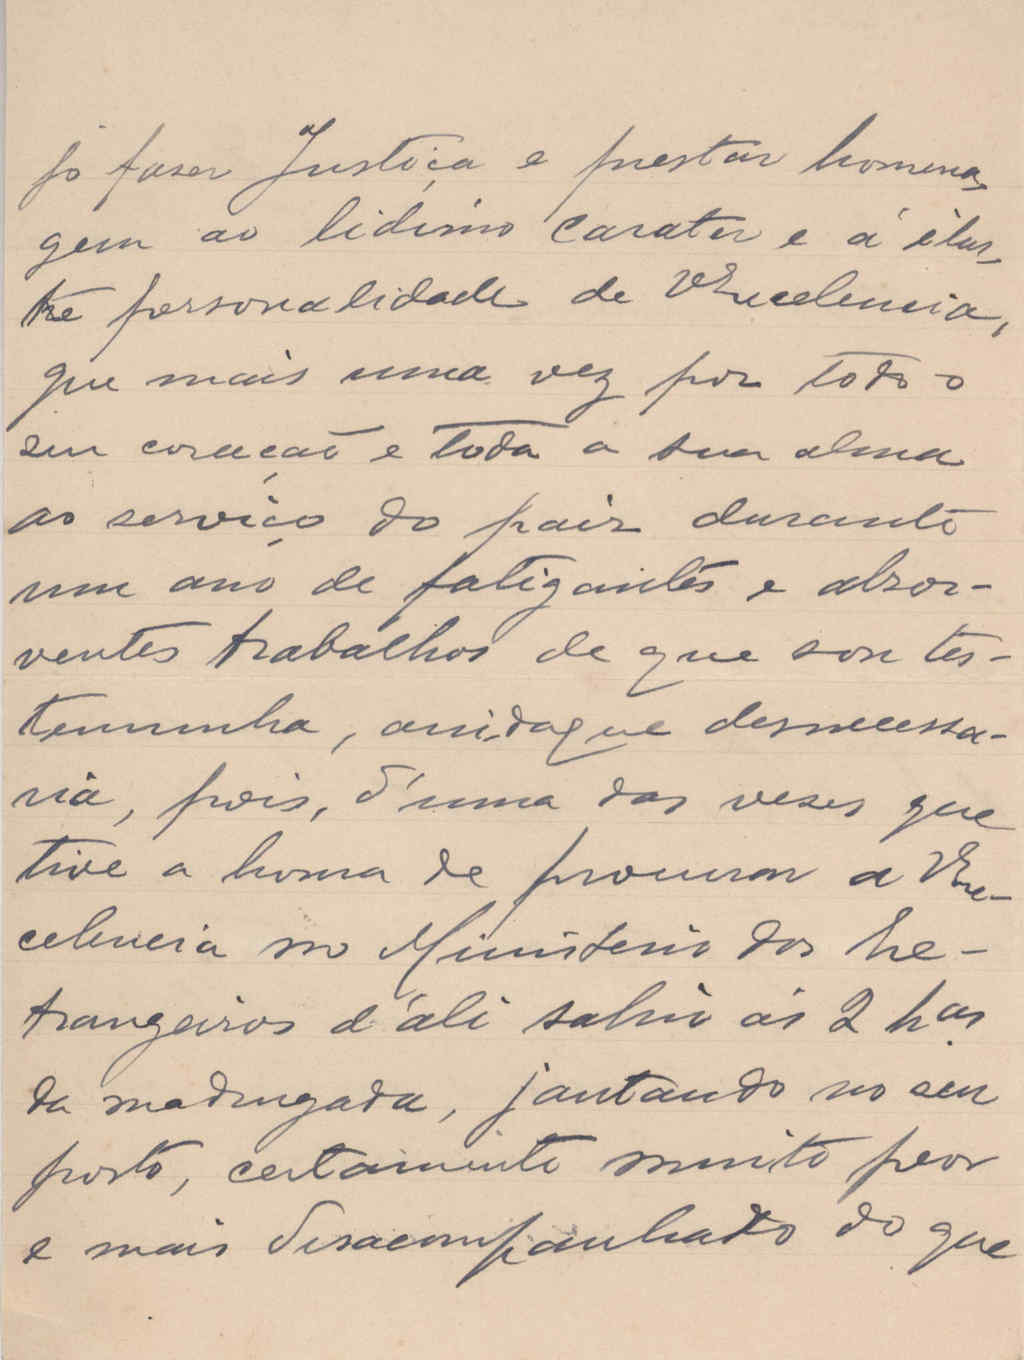 jo faser Justiça e prestar homena-
gem ao lidimo carater e á ilus-
tre personalidade de VExcelencia,
que mais uma vez poz todo o
seu coração e toda a sua alma
ao serviço do paiz durante
um ano de fatigantes e absor-
ventes trabalhos de que sou tes-
temunha, aindaque desnecessa-
ria, pois, d'uma das veses que
tive a honra de procurar a VEx-
celencia no Ministerio dos Es-
trangeiros d'áli sahio ás 2 has
da madrugada, jantando no seu
posto, certamente muito peor
e mais desacompanhado do que